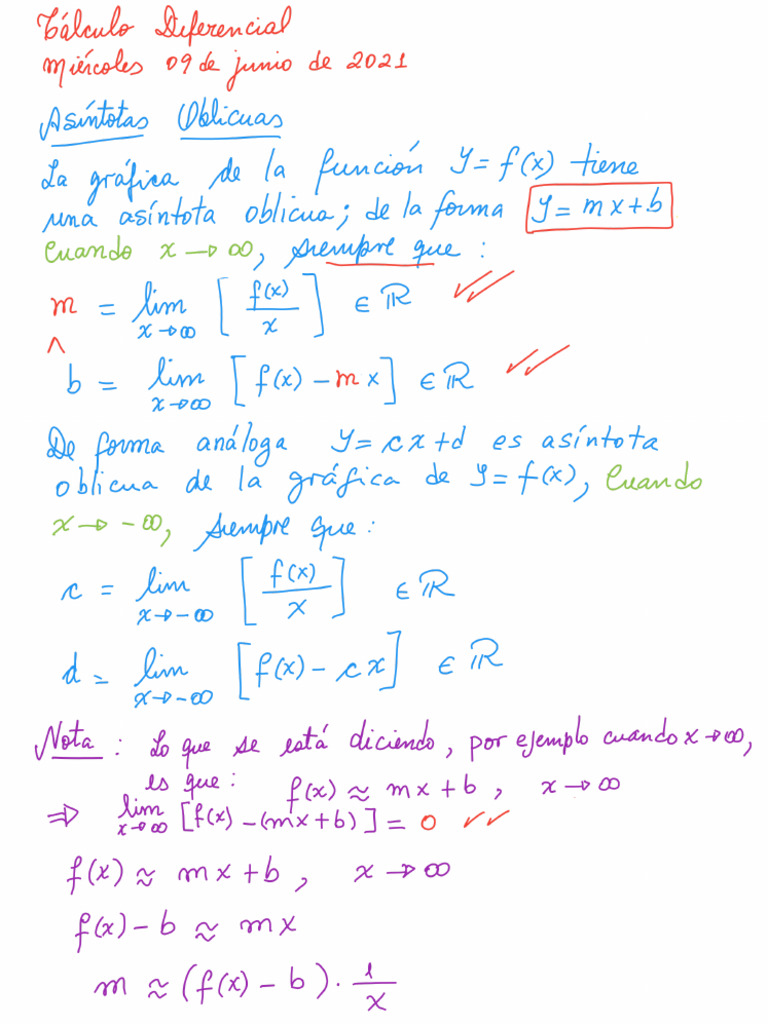 Cálculo Diferencial
Miércoles 09 de junio de 2021
Asíntotas Oblicuas
La gráfica de la función y = f(x) tiene
una asíntota oblicua; de la forma y = mx+b
Cuando x → ∞, siempre que :
m = lim x→∞ [f(x)/x] ∈ ℝ ✓✓
^
b = lim x→∞ [f(x) - mx] ∈ ℝ ✓✓
De forma análoga y = cx+d es asíntota
oblicua de la gráfica de y = f(x), Cuando
x → -∞, siempre que :
c = lim x→-∞ [f(x)/x] ∈ ℝ
d = lim x→-∞ [f(x) - cx] ∈ ℝ
Nota : Lo que se está diciendo, por ejemplo cuando x→∞,
es que : f(x) ≈ mx+b , x → ∞
⇒ lim x→∞ [f(x) - (mx+b)] = 0 ✓✓
f(x) ≈ mx+b , x → ∞
f(x) - b ≈ mx
m ≈ (f(x) - b) · 1/x